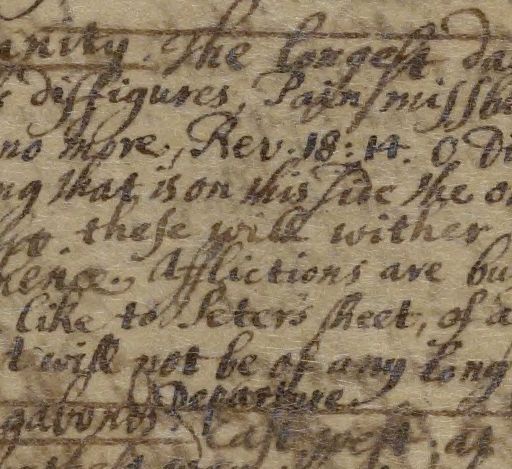 anity. The longest da
disfigures, Pajn missh
no more, Rev. 18: 14. O Di
ng that is on this side the o
these will wither
Afflictions are bu
like to Peters sheet, of a
t will not be of any long
Departure.
gabonds